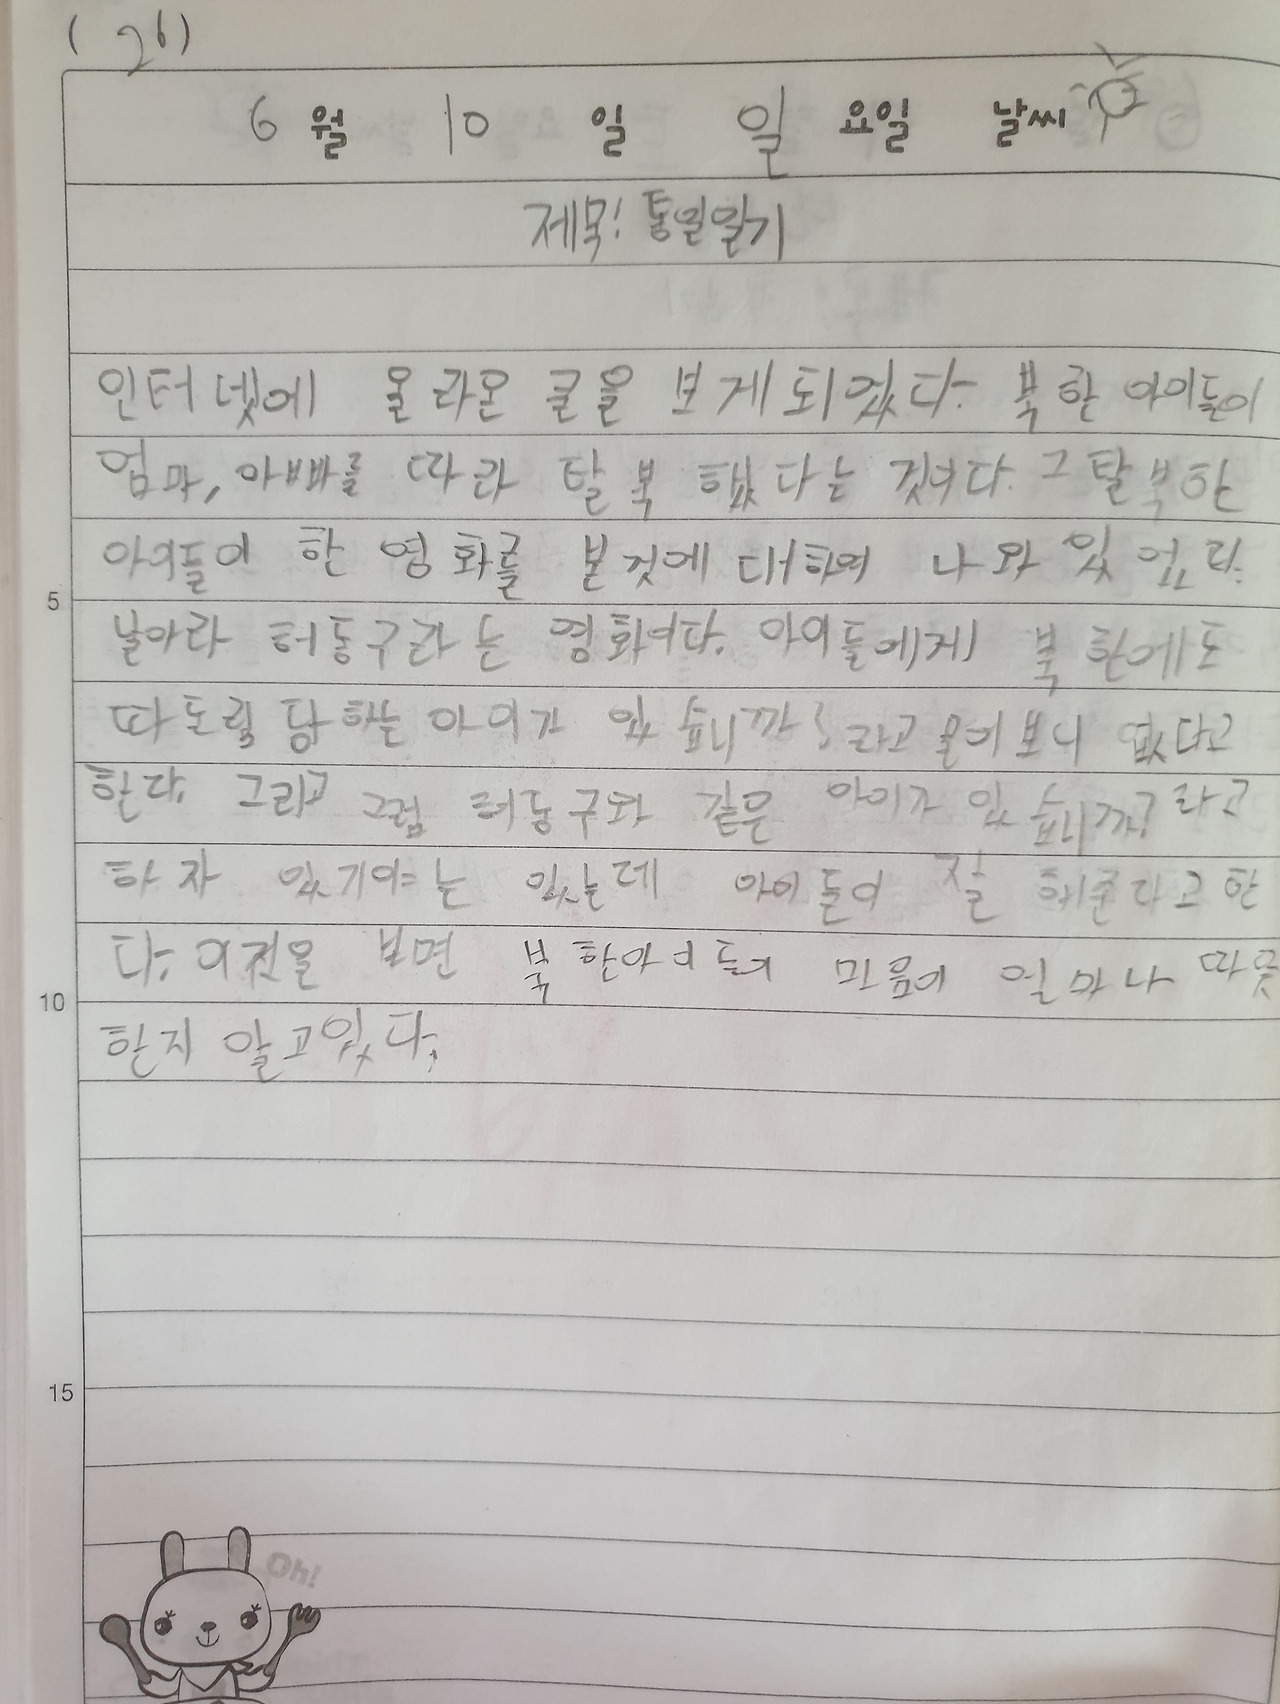 (26)
6월 10일 일요일 날씨
제목! 통일일기
인터넷에 올라온 글을 보게되었다. 북한 아이들이
엄마, 아빠를 따라 탈북 했다는 것이다. 그 탈북한
아이들이 한 영화를 본것에 대하여 나와있었다.
날아라 허동구라는 영화이다. 아이들에게 북한에도
따도릭 당하는 아이가 있습니까? 라고 물어보니 없다고
한다. 그리고 그럼 허동구와 같은 아이가 있습니까? 라고
하자 있기야는 있는데 아이들이 잘 해준다고 한
다. 이것을 보면 북한아이들의 마음이 얼마나 따뜻
한지 알고있다.
5
10
15
Oh!